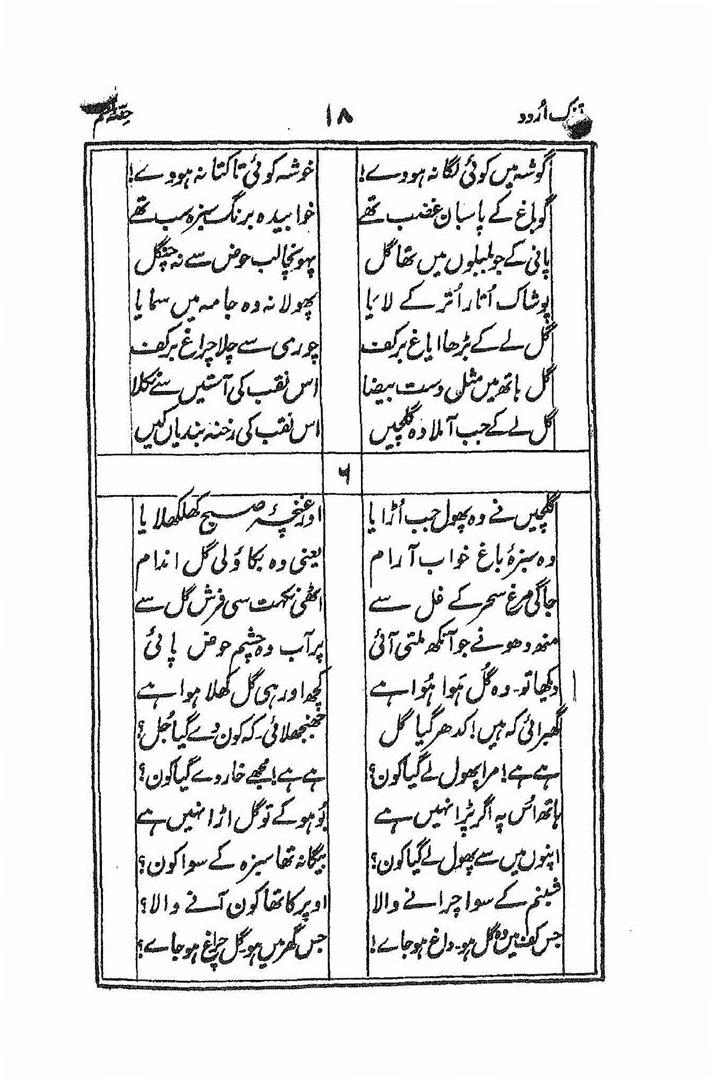 تزک اُردو ۱۸ حصّہ
گوشہ میں کوئی لگا نہ ہووے! خوشہ کوئی تاکتا نہ ہووے!
گو باغ کے پاسبان غضب تھے خوابیدہ برنگ سبزہ سب تھے
پانی کے جو بلبلوں میں تھا گل پہونچا لب حوض سے نہ چنگل
پوشاک اُتار اُتر کے لایا پھولا نہ وہ جامہ میں سمایا
گل لے کے بڑھا ایاغ برکف چوری سے چلا چراغ برکف
گل ہاتھ میں مثل دست بیضا اس نقب کی آستیں سے نکلا
گل لے کے جب آملا وہ گلچیں اس نقب کی رخنہ بندیاں کیں
۶
گلچیں نے وہ پھول جب اُڑایا اور غنچۂ صبح کھلکھلایا
وہ سبزۂ باغ خواب آرام یعنی وہ بکاؤلی گل اندام
جاگی مرغ سحر کے غل سے اٹھی نکہت سی فرش گل سے
منھ دھونے جو آنکھ ملتی آئی پر آب وہ چشم حوض پائی
دیکھا تو۔ وہ گل ہَوا ہُوا ہے کچھ اور ہی گل کھلا ہوا ہے
گھبرائی کہ ہیں! کدھر گیا گل جھنجھلائی۔ کہ کون دے گیا جُل؟
ہے ہے! مرا پھول لے گیا کون؟ ہے ہے! مجھے خار دے گیا کون؟
ہاتھ اُس پہ اگر پڑا نہیں ہے بو ہو کے تو گل اڑا نہیں ہے
اپنوں میں سے پھول لے گیا کون؟ بیگانہ تھا سبزہ کے سوا کون؟
شبنم کے سوا چرانے والا اوپر کا تھا کون آنے والا؟
جس کف میں وہ گل ہو۔ داغ ہو جاے! جس گھر میں ہو۔ گل چراغ ہو جاے؟